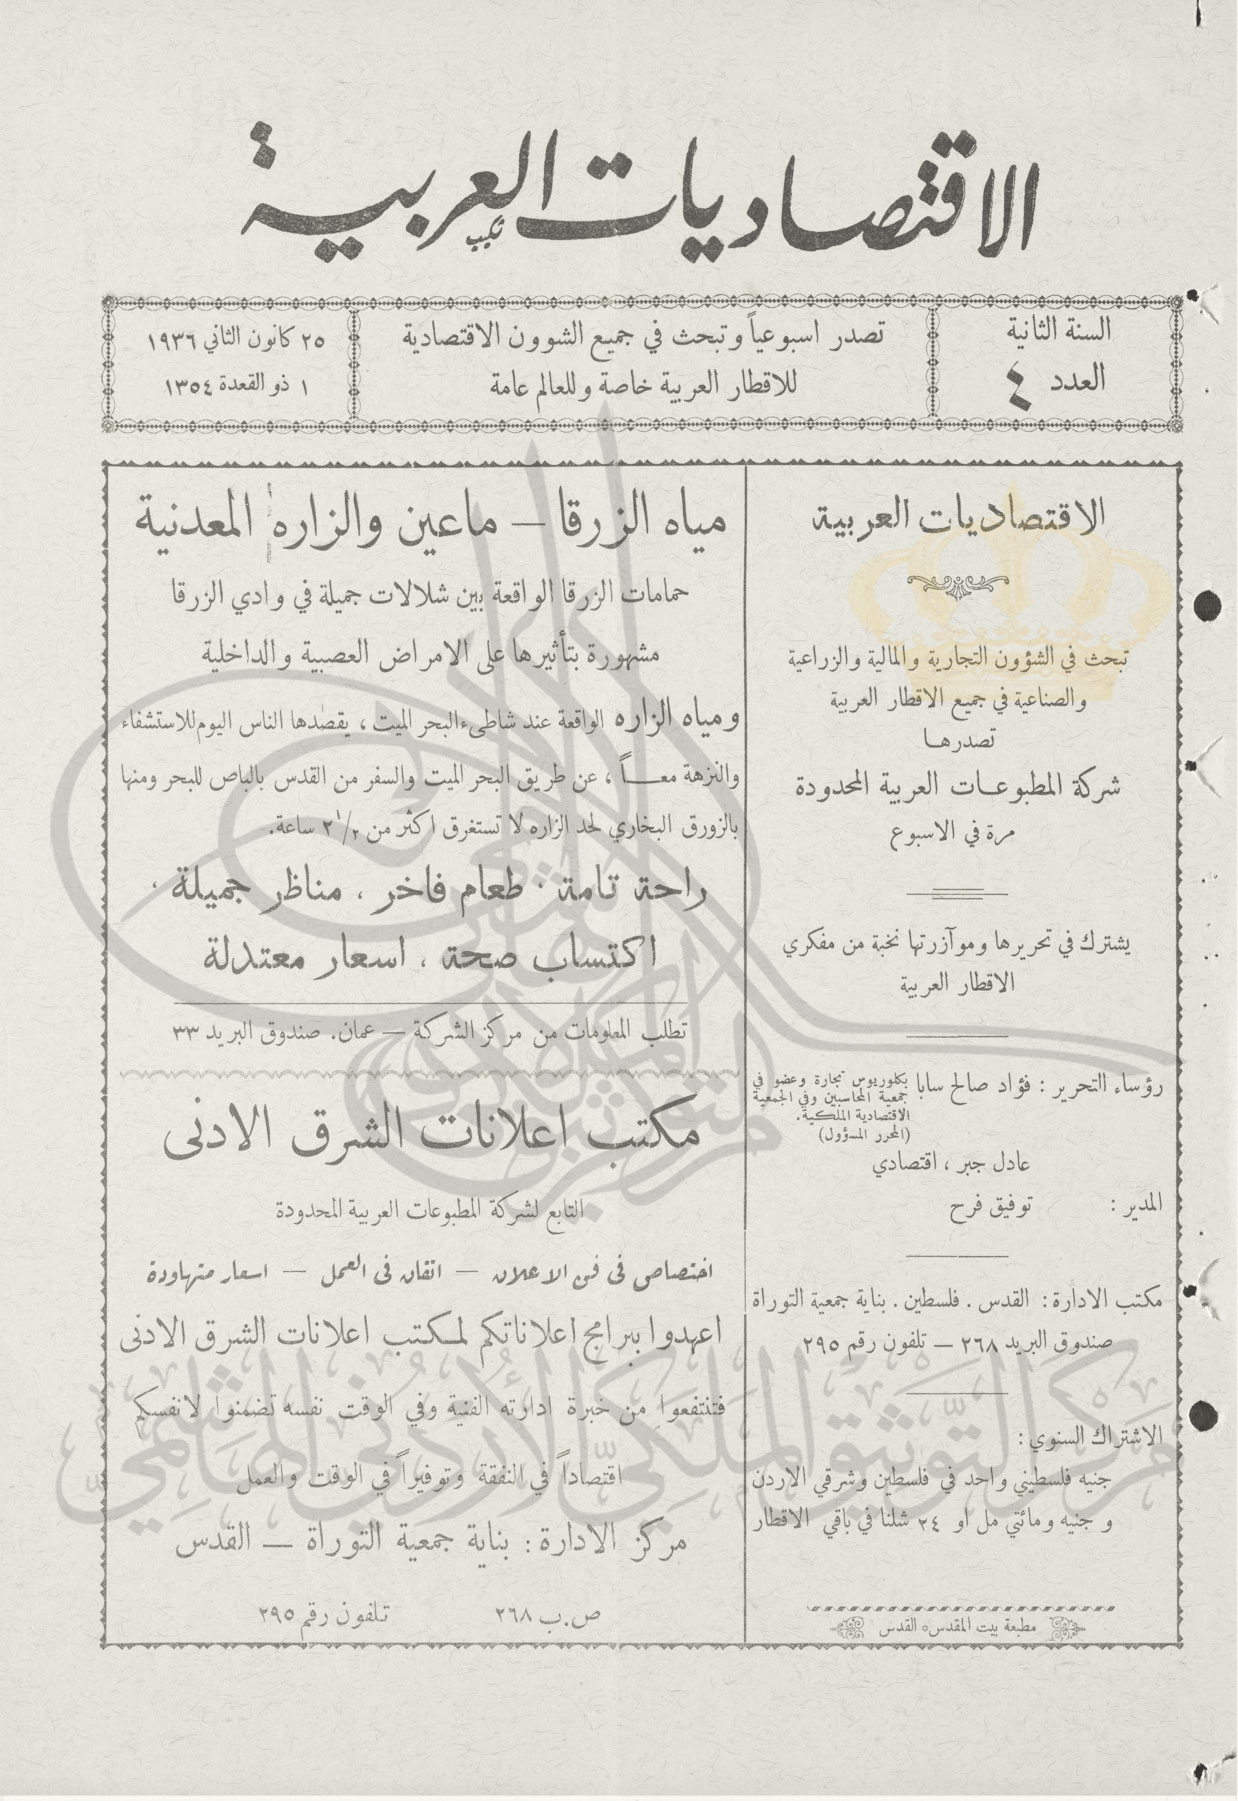 الاقتصاديات العربية
السنة الثانية
العدد ٤
تصدر اسبوعياً وتبحث في جميع الشوون الاقتصادية
للاقطار العربية خاصة وللعالم عامة
٢٥ كانون الثاني ١٩٣٦
١ ذو القعدة ١٣٥٤
الاقتصاديات العربية
تبحث في الشؤون التجارية والمالية والزراعية
والصناعية في جميع الاقطار العربية
تصدرها
شركة المطبوعات العربية المحدودة
مرة في الاسبوع
يشترك في تحريرها وموآزرتها نخبة من مفكري
الاقطار العربية
رؤساء التحرير : فؤاد صالح سابا بكلوريوس تجارة وعضو في
جمعية المحاسبين وفي الجمعية
الاقتصادية الملكية.
(المحرر المسؤول)
عادل جبر ، اقتصادي
المدير : توفيق فرح
مكتب الادارة : القدس . فلسطين . بناية جمعية التوراة
صندوق البريد ٢٦٨ — تلفون رقم ٢٩٥
الاشتراك السنوي :
جنيه فلسطيني واحد في فلسطين وشرقي الاردن
و جنيه ومائتي مل او ٢٤ شلنا في باقي الاقطار
مطبعة بيت المقدس القدس
مياه الزرقا — ماعين والزاره المعدنية
حمامات الزرقا الواقعة بين شلالات جميلة في وادي الزرقا
مشهورة بتأثيرها على الامراض العصبية والداخلية
ومياه الزاره الواقعة عند شاطىء البحر الميت ، يقصدها الناس اليوم للاستشفاء
والنزهة معاً ، عن طريق البحر الميت والسفر من القدس بالباص للبحر ومنها
بالزورق البخاري لحد الزاره لا تستغرق اكثر من ٢ ١/٢ ساعة.
راحة تامة . طعام فاخر . مناظر جميلة .
اكتساب صحة . اسعار معتدلة
تطلب المعلومات من مركز الشركة — عمان. صندوق البريد ٣٣
مكتب اعلانات الشرق الادنى
التابع لشركة المطبوعات العربية المحدودة
اختصاص في فن الاعلان — اتقان في العمل — اسعار متهاودة
اعهدوا ببرامج اعلاناتكم لمكتب اعلانات الشرق الادنى
فتنتفعوا من خبرة ادارته الفنية وفي الوقت نفسه تضمنوا لانفسكم
اقتصاداً في النفقة وتوفيراً في الوقت والعمل
مركز الادارة : بناية جمعية التوراة — القدس
ص.ب ٢٦٨ تلفون رقم ٢٩٥
مركز التوثيق الملكي الأردني الهاشمي